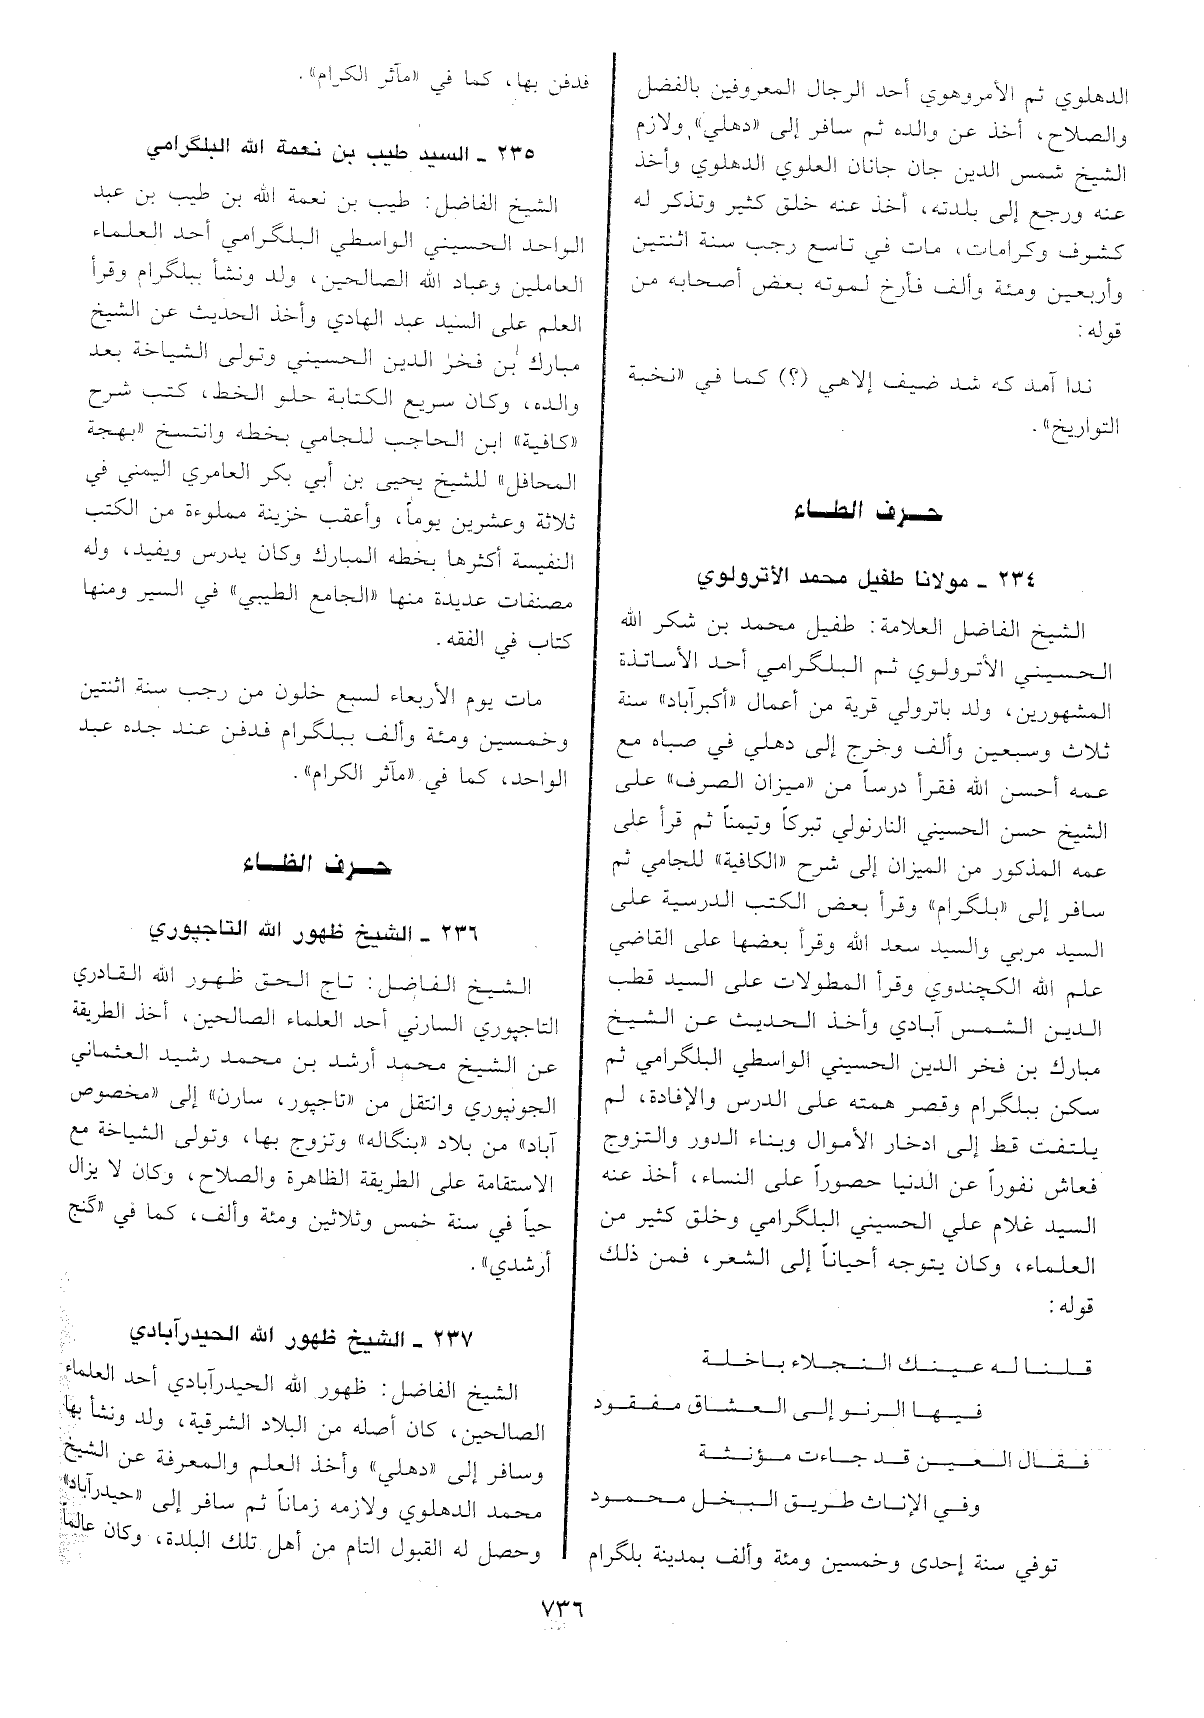 الدهلوي ثم الأمروهوي أحد الرجال المعروفين بالفضل
والصلاح، أخذ عن والده ثم سافر إلى «دهلي» ولازم
الشيخ شمس الدين جان جانان العلوي الدهلوي وأخذ
عنه ورجع إلى بلدته، أخذ عنه خلق كثير وتذكر له
كشوف وكرامات، مات في تاسع رجب سنة اثنتين
وأربعين ومئة وألف فأرخ لموته بعض أصحابه من
قوله:
ندا آمد كه شد ضيف إلاهي (؟) كما في «نخبة
التواريخ».
حرف الطاء
٢٣٤ ـ مولانا طفيل محمد الأترولوي
الشيخ الفاضل العلامة: طفيل محمد بن شكر الله
الحسيني الأترولوي ثم البلگرامي أحد الأساتذة
المشهورين، ولد باترولي قرية من أعمال «أكبرآباد» سنة
ثلاث وسبعين وألف وخرج إلى دهلي في صباه مع
عمه أحسن الله فقرأ درساً من «ميزان الصرف» على
الشيخ حسن الحسيني النارنولي تبركاً وتيمناً ثم قرأ على
عمه المذكور من الميزان إلى شرح «الكافية» للجامي ثم
سافر إلى «بلگرام» وقرأ بعض الكتب الدرسية على
السيد مربي والسيد سعد الله وقرأ بعضها على القاضي
علم الله الكچندوي وقرأ المطولات على السيد قطب
الدين الشمس آبادي وأخذ الحديث عن الشيخ
مبارك بن فخر الدين الحسيني الواسطي البلگرامي ثم
سكن ببلگرام وقصر همته على الدرس والإفادة، لم
يلتفت قط إلى ادخار الأموال وبناء الدور والتزوج
فعاش نفوراً عن الدنيا حصوراً على النساء، أخذ عنه
السيد غلام علي الحسيني البلگرامي وخلق كثير من
العلماء، وكان يتوجه أحياناً إلى الشعر، فمن ذلك
قوله:
قلنا له عينك النجلاء باخلة
فيها الرنو إلى العشاق مفقود
فقال العين قد جاءت مؤنثة
وفي الإناث طريق البخل محمود
توفي سنة إحدى وخمسين ومئة وألف بمدينة بلگرام
فدفن بها، كما في «مآثر الكرام».
٢٣٥ ـ السيد طيب بن نعمة الله البلگرامي
الشيخ الفاضل: طيب بن نعمة الله بن طيب بن عبد
الواحد الحسيني الواسطي البلگرامي أحد العلماء
العاملين وعباد الله الصالحين، ولد ونشأ ببلگرام وقرأ
العلم على السيد عبد الهادي وأخذ الحديث عن الشيخ
مبارك بن فخر الدين الحسيني وتولى الشياخة بعد
والده، وكان سريع الكتابة حلو الخط، كتب شرح
«كافية» ابن الحاجب للجامي بخطه وانتسخ «بهجة
المحافل» للشيخ يحيى بن أبي بكر العامري اليمني في
ثلاثة وعشرين يوماً، وأعقب خزينة مملوءة من الكتب
النفيسة أكثرها بخطه المبارك وكان يدرس ويفيد، وله
مصنفات عديدة منها «الجامع الطيبي» في السير ومنها
كتاب في الفقه.
مات يوم الأربعاء لسبع خلون من رجب سنة اثنتين
وخمسين ومئة وألف ببلگرام فدفن عند جده عبد
الواحد، كما في «مآثر الكرام».
حرف الظاء
٢٣٦ ـ الشيخ ظهور الله التاجپوري
الشيخ الفاضل: تاج الحق ظهور الله القادري
التاجپوري السارني أحد العلماء الصالحين، أخذ الطريقة
عن الشيخ محمد أرشد بن محمد رشيد العثماني
الجونپوري وانتقل من «تاجپور، سارن» إلى «مخصوص
آباد» من بلاد «بنگاله» وتزوج بها، وتولى الشياخة مع
الاستقامة على الطريقة الظاهرة والصلاح، وكان لا يزال
حياً في سنة خمس وثلاثين ومئة وألف، كما في «گنج
أرشدي».
٢٣٧ ـ الشيخ ظهور الله الحيدرآبادي
الشيخ الفاضل: ظهور الله الحيدرآبادي أحد العلماء
الصالحين، كان أصله من البلاد الشرقية، ولد ونشأ بها
وسافر إلى «دهلي» وأخذ العلم والمعرفة عن الشيخ
محمد الدهلوي ولازمه زماناً ثم سافر إلى «حيدرآباد»
وحصل له القبول التام من أهل تلك البلدة، وكان عالماً
٧٣٦